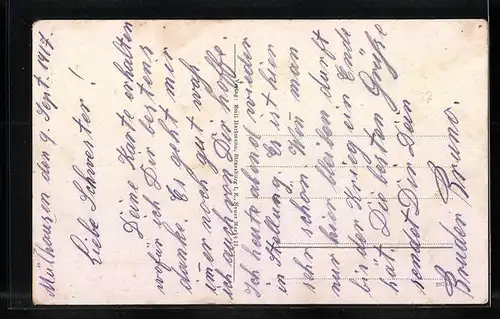 Mülhausen den 9. Sept. 1917.
Liebe Schwester!
Deine Karte erhalten
wofür ich Dir bestens
danke. Es geht mir
imer noch gut was
ich auch von Dir hoffe.
Ich heute abend wieder
in Stellung. Es ist hier
sehr schön. Wen man
nur hier bleiben darft
bis der Krieg ein Ende
hat. Die besten Grüße
sendet Dir Dein
Bruder Bruno.